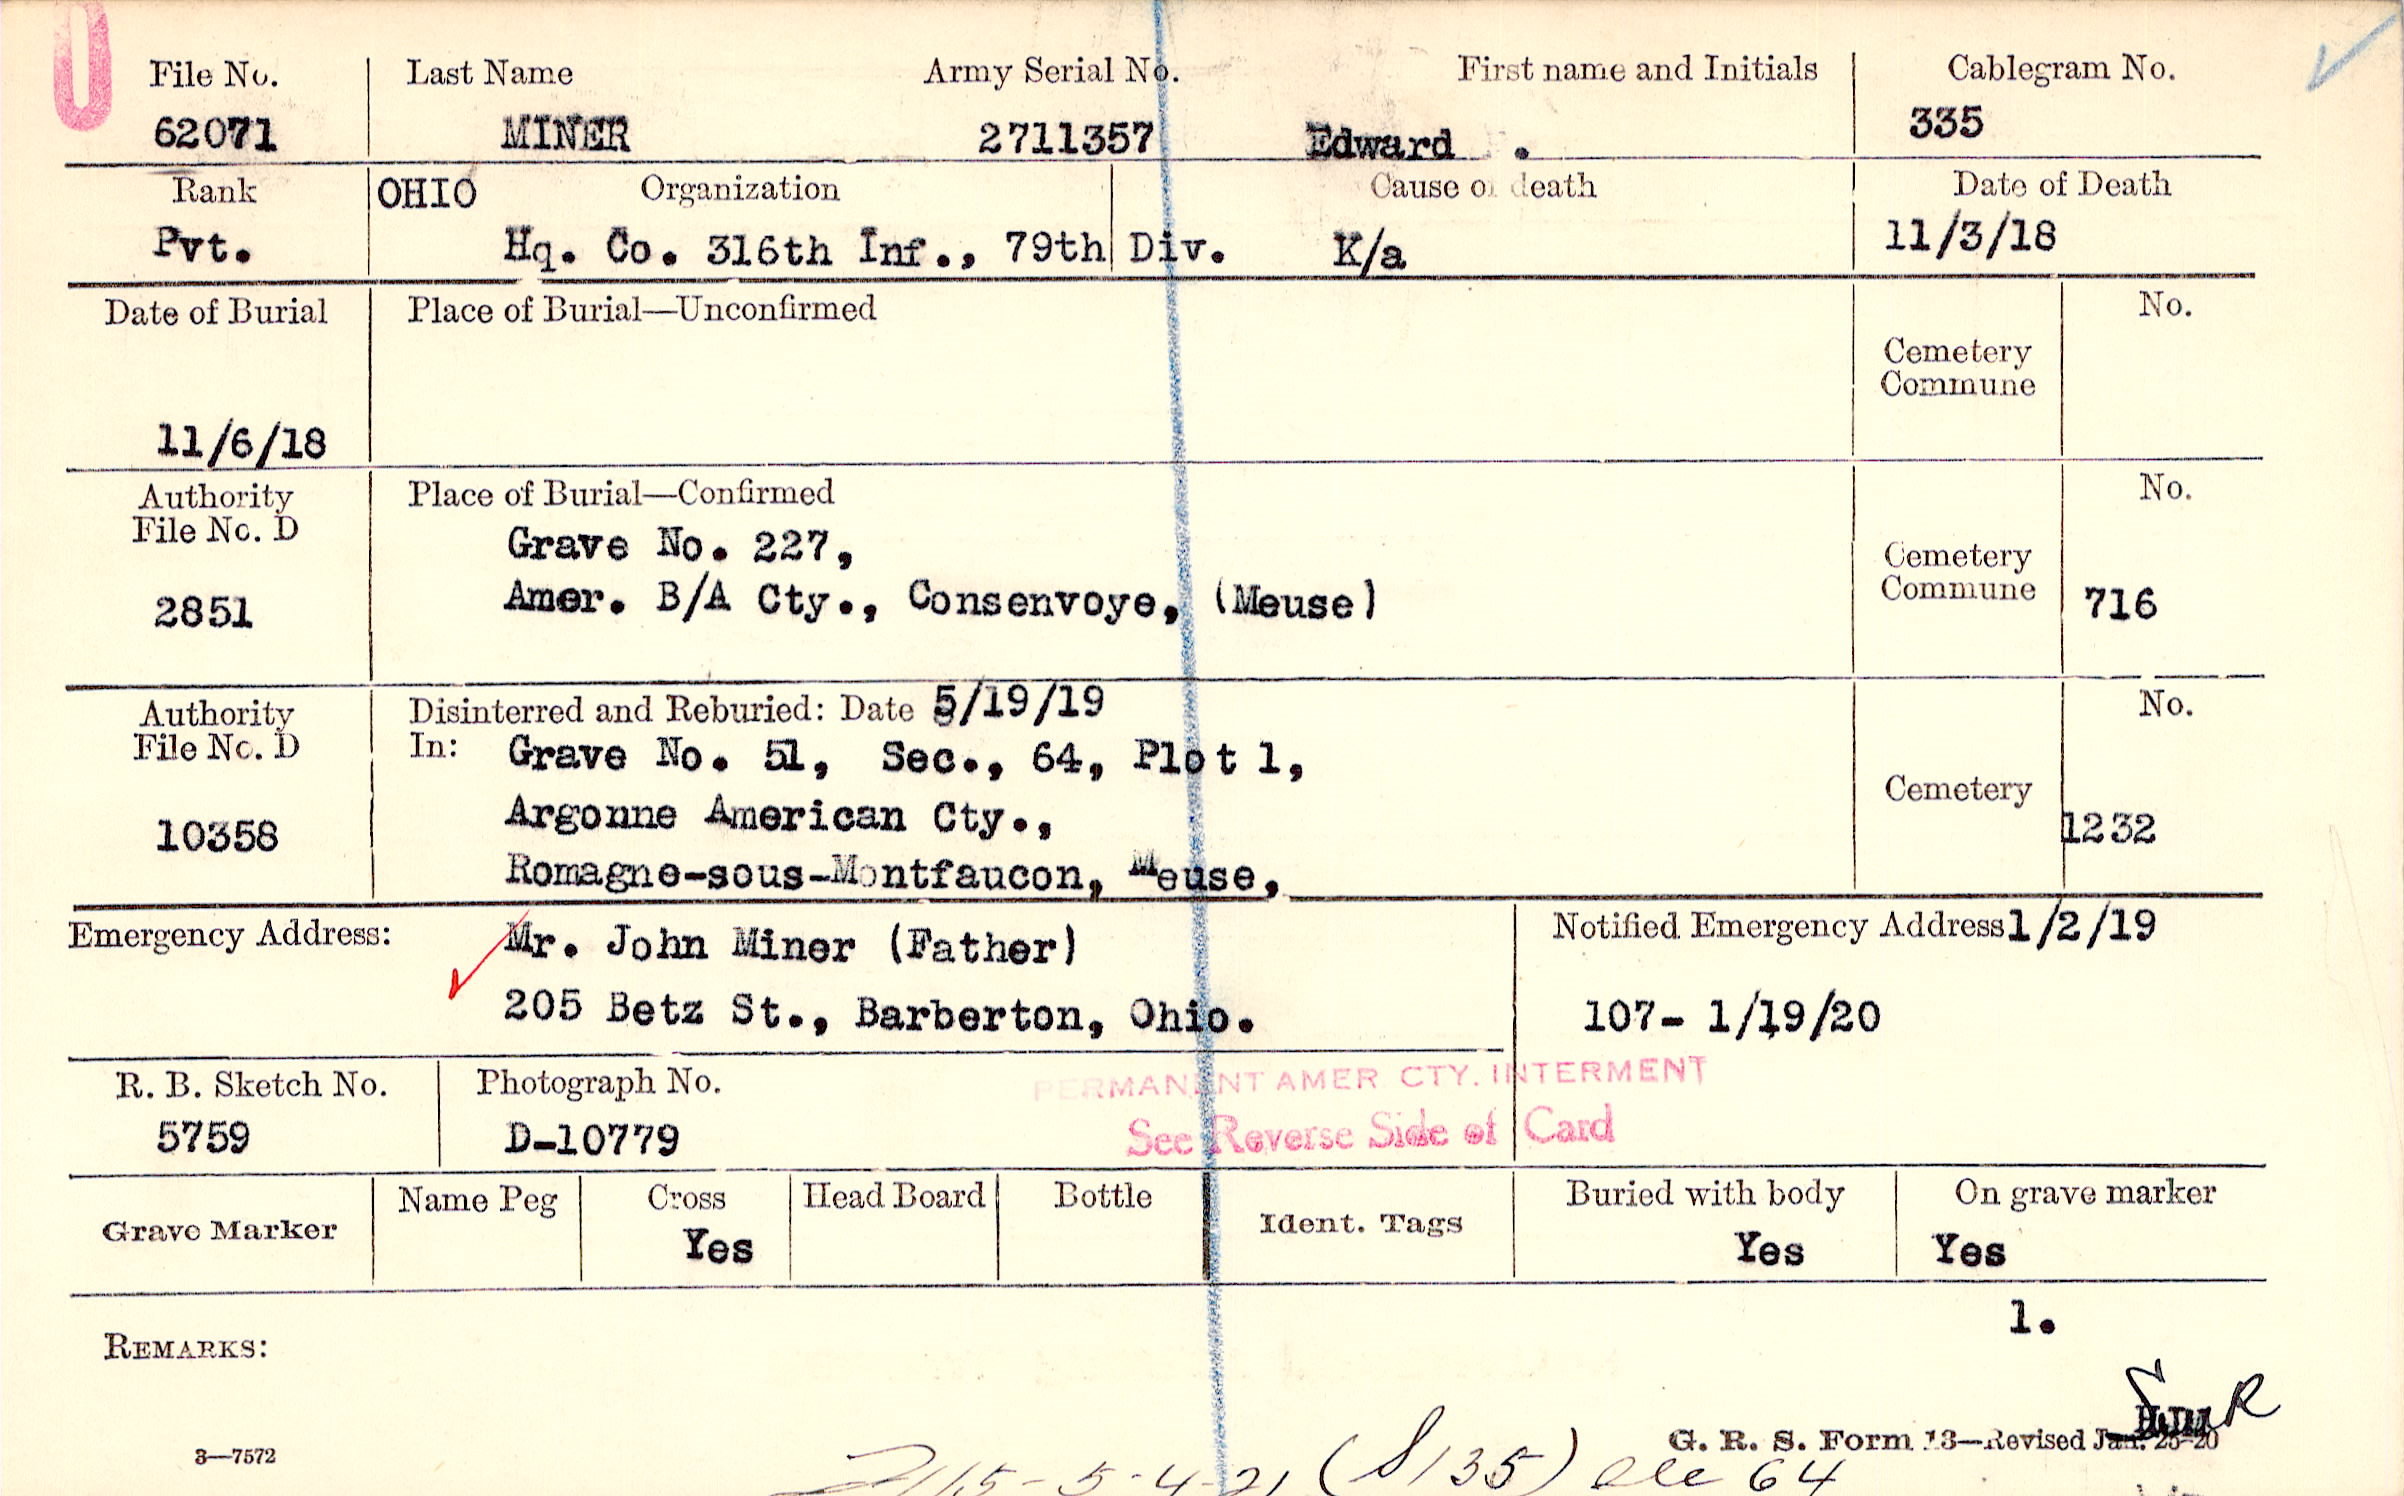 File No. Last Name Army Serial No. First name and Initials Cablegram No.
62071 MINER 2711357 Edward . 335
Rank OHIO Organization Cause of death Date of Death
Pvt. Hq. Co. 316th Inf., 79th Div. K/a 11/3/18
Date of Burial Place of Burial—Unconfirmed No.
Cemetery
Commune
11/6/18
Authority Place of Burial—Confirmed No.
File No. D Grave No. 227, Cemetery
2851 Amer. B/A Cty., Consenvoye, (Meuse) Commune 716
Authority Disinterred and Reburied: Date 5/19/19 No.
File No. D In: Grave No. 51, Sec., 64, Plot 1,
10358 Argonne American Cty., Cemetery 1232
Romagne-sous-Montfaucon, Meuse,
Emergency Address: Mr. John Miner (Father) Notified Emergency Address 1/2/19
205 Betz St., Barberton, Ohio. 107- 1/19/20
R. B. Sketch No. Photograph No. PERMANENT AMER CTY. INTERMENT
5759 D-10779 See Reverse Side of Card
Grave Marker Name Peg Cross Head Board Bottle Ident. Tags Buried with body On grave marker
Yes Yes Yes
1.
REMARKS:
3—7572 G. R. S. Form 13—Revised Jan. 25-20
5-4-21 (S135) 64